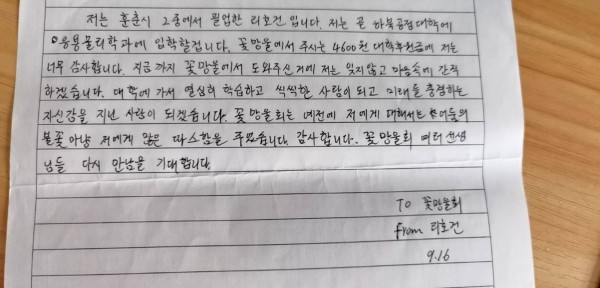 저는 훈춘시 2중에서 필업한 리호건 입니다. 저는 곧 하북공정대학에
응용물리학과에 입학할겁니다. 꽃망울에서 주시는 4600원 대학후원금에 저는
너무 감사합니다. 지금까지 꽃망울에서 도와주신거에 저는 잊지않고 마음속에 간직
하겠습니다. 대학에 가서 열심히 학습하고 씩씩한 사람이 되고 미래를 충정하는
자신감을 지닌 사람이 되겠습니다. 꽃망울회는 예전에 저에게 대해서는 한여름의
불꽃마냥 저에게 많은 따스함을 주었습니다. 감사합니다. 꽃망울회 여러 선생
님들 다시 만남을 기대합니다.
To 꽃망울회
from 리호건
9.16